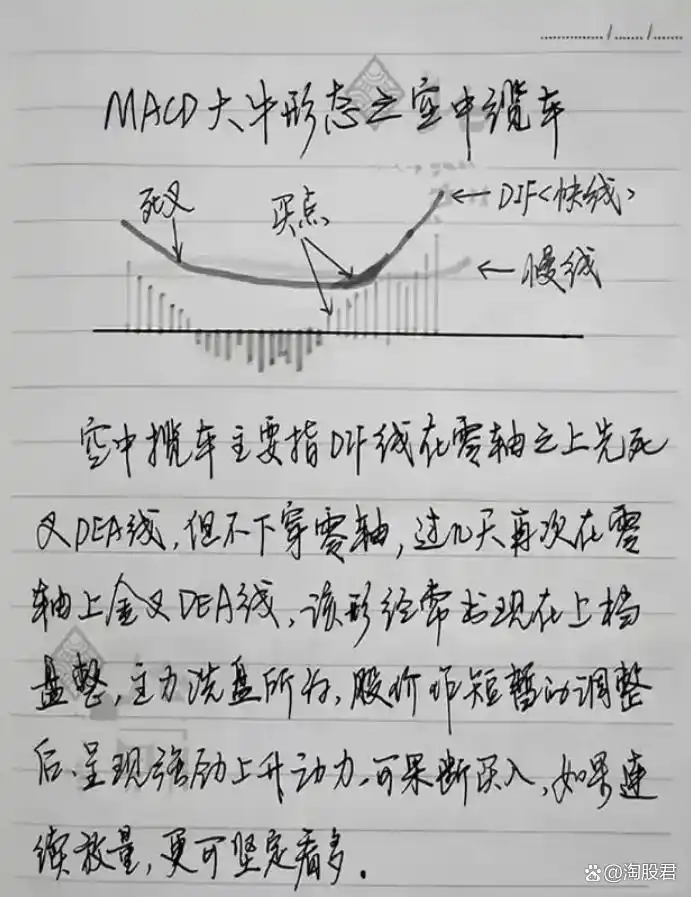 MACD大牛形态之空中缆车
死叉
买点
←DIF<快线>
←慢线
空中揽车主要指DIF线在零轴之上先死
叉DEA线,但不下穿零轴,过几天再次在零
轴上金叉DEA线,该形经常出现在上档
盘整,主力洗盘所为,股价作短暂的调整
后、呈现强劲上升动力,可果断买入,如果连
续放量,更可坚定看多.
@淘股君